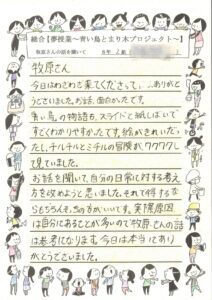 総合【夢授業~青い鳥と立り木プロジェクト~】
牧原さんの話を聞いて 5年2組
牧原さん
今日はわざわざ来てくださって、ありがと
うございました。お話、面白かったです。
青い鳥の物語も、スライドと紙しばいで
すごくわかりやすかったです。絵がきれいだっ
たし、チルチルとミチルの冒険が、ワクワクし
て見ていました。
お話を聞いて、自分の日常に対する考え
方を改めようと思いました。それで得するな
らもちろん、そっちの方がいいです。実際原因
は自分にあることが多いので牧原さんの話
は参考になります。今日は本当にあり
がとうございました。